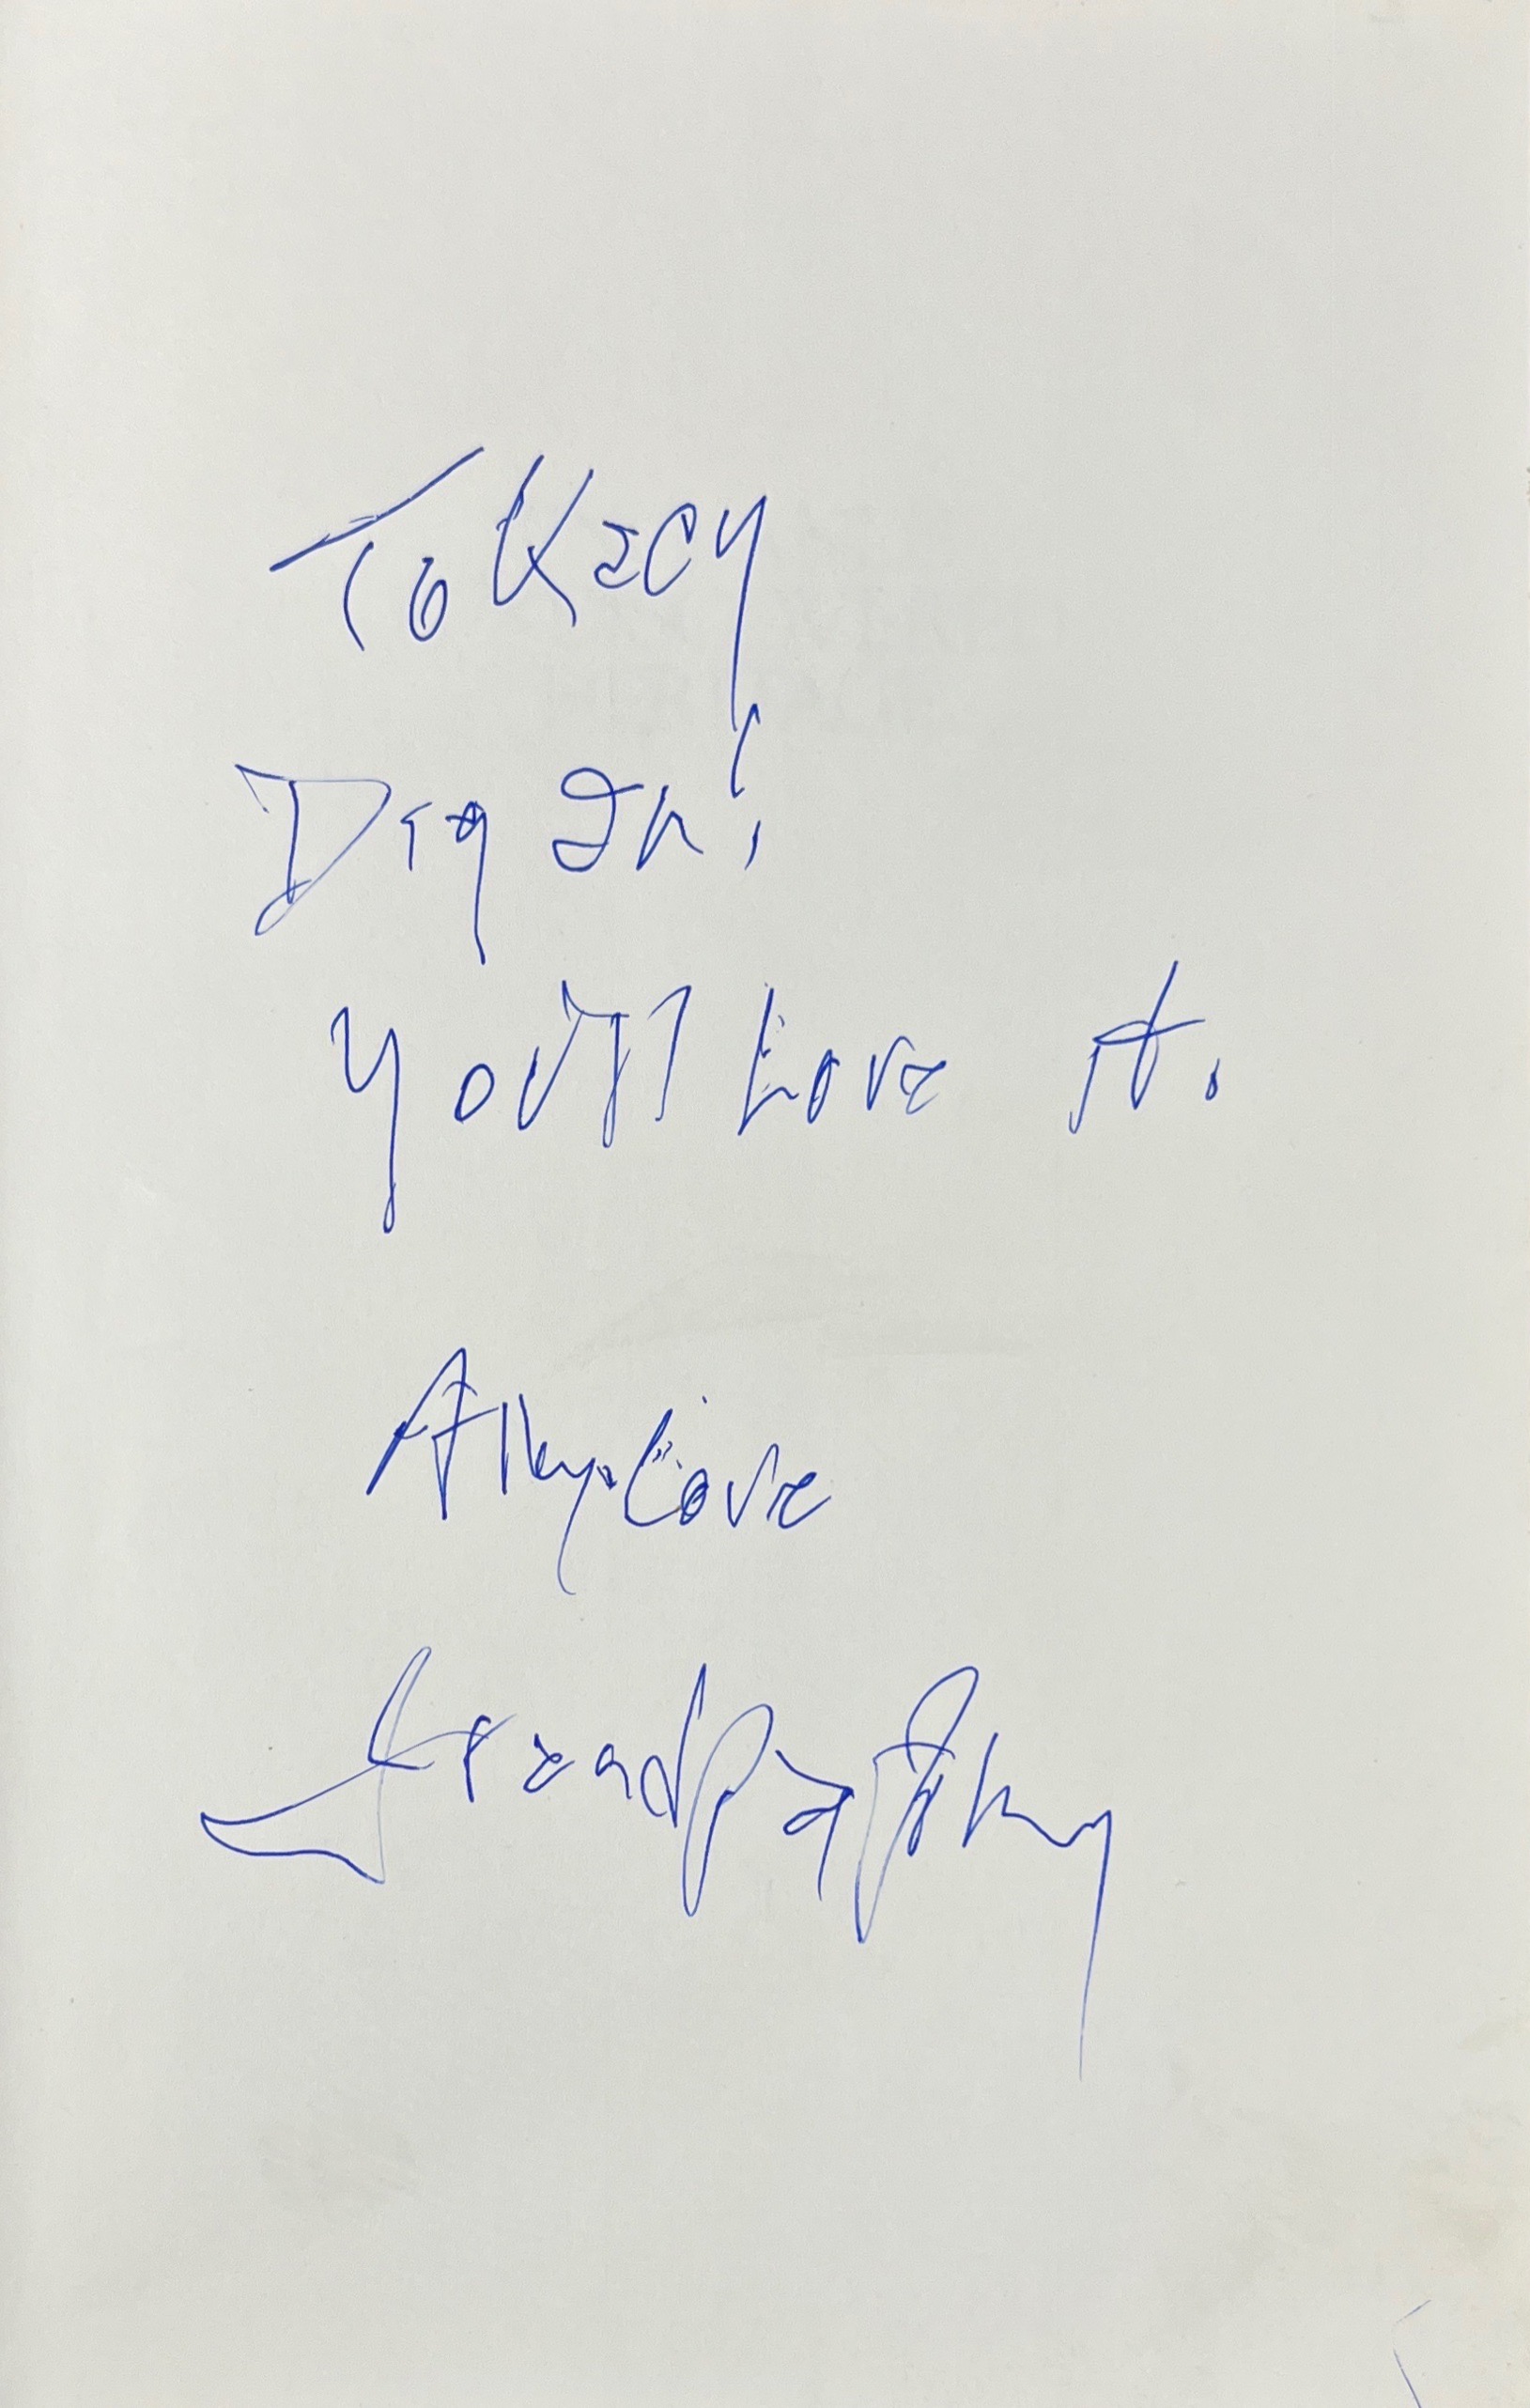 To Kacy
Dig In!
You'll Love it.
All my Love
Grandpa